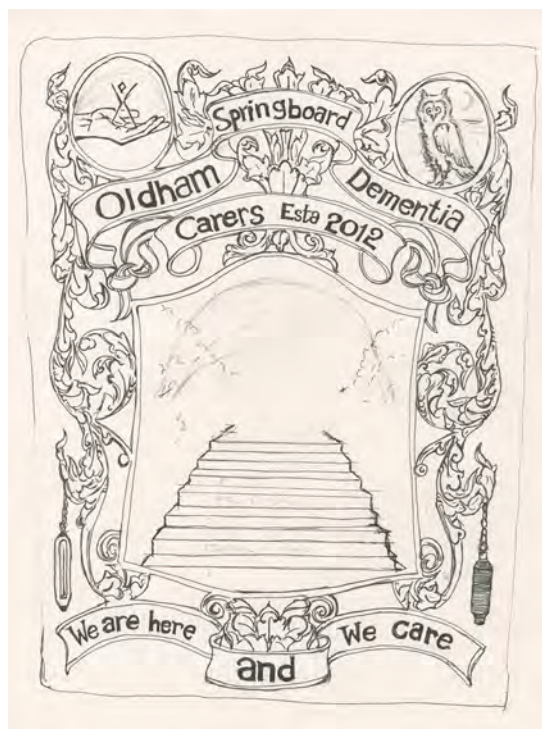 Springboard
Oldham Dementia
Carers Estd 2012
We are here
and
We care